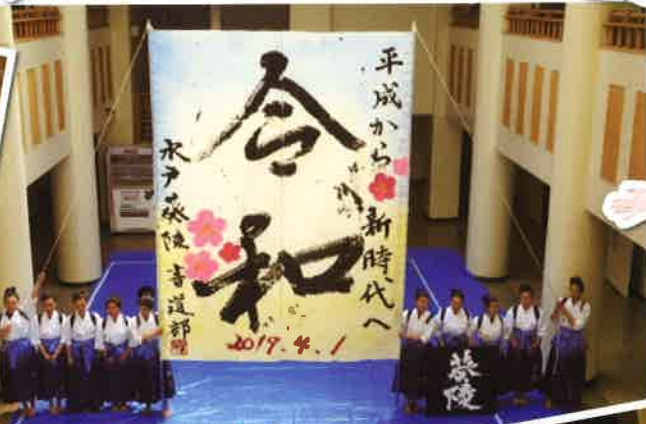 平成から新時代へ
令和
水戸葵陵書道部
2019.4.1
葵陵